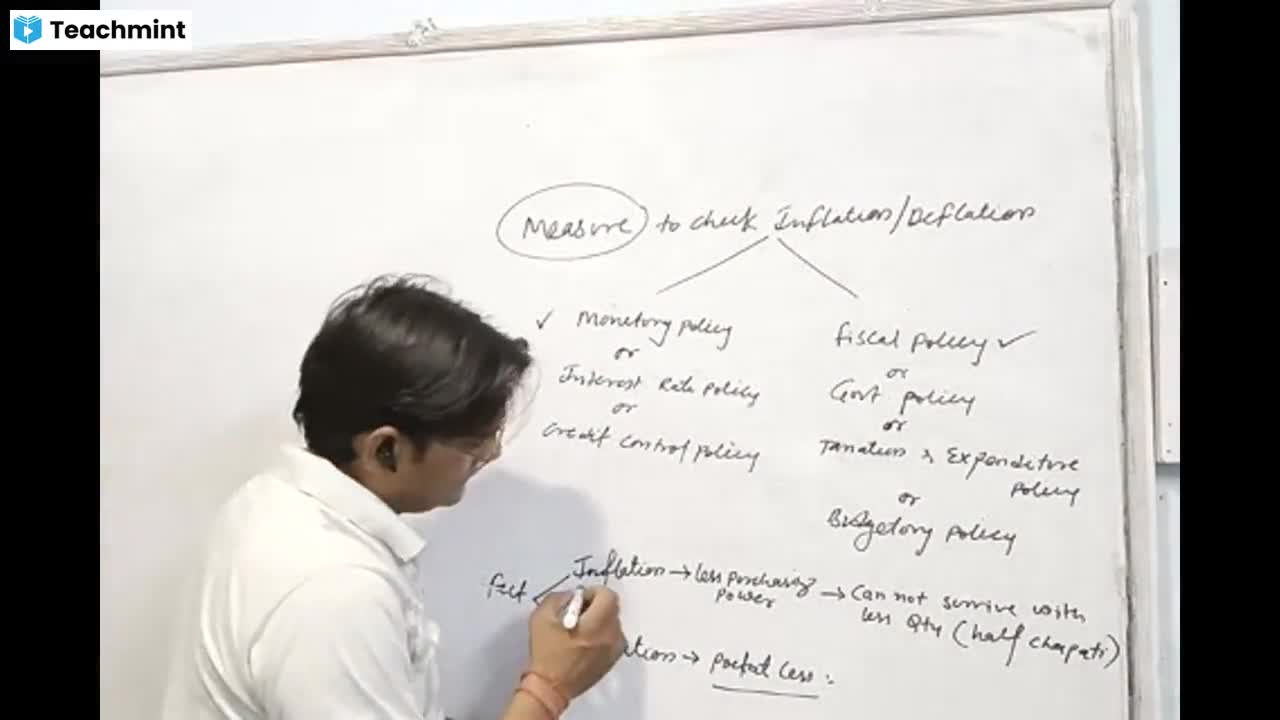 Teachmint
Measure to check Inflation/Deflation
✓ Monetory policy
or
Interest Rate policy
or
Credit control policy
fiscal policy ✓
or
Govt policy
or
Tanation & Expenditure
policy
or
Budgetory policy
fect
Inflation → less purchasing
power
→ Can not survive with
less Qty (half chapati)
ation →
less